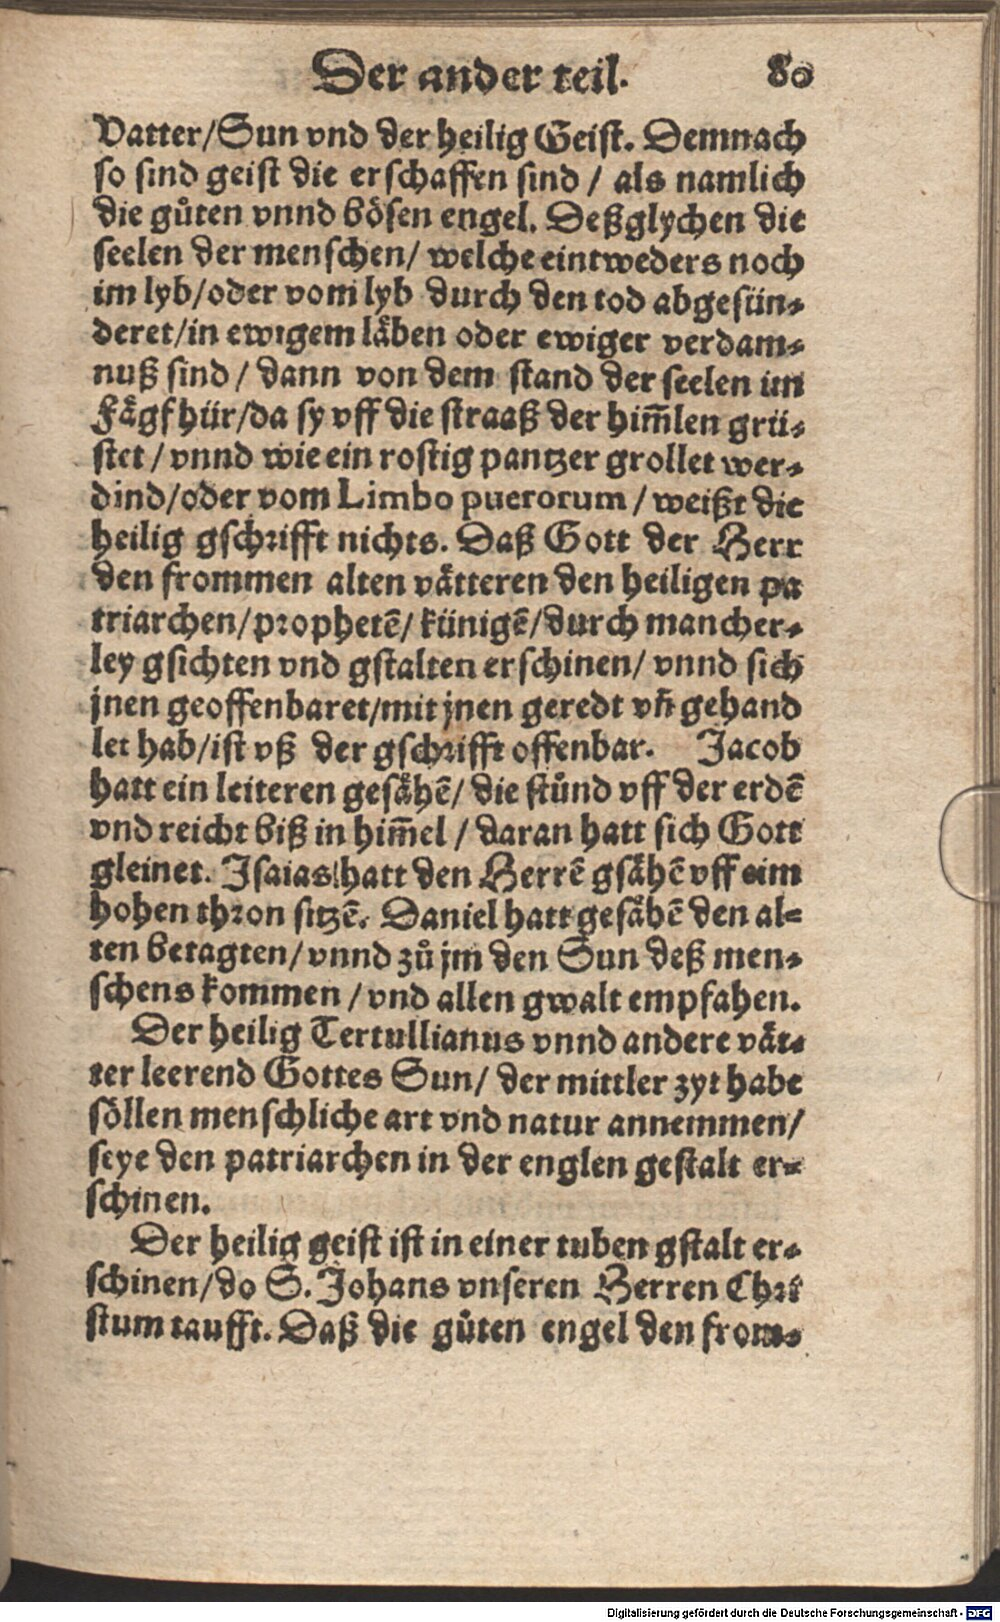 Der ander teil. 80
Vatter/Sun vnd der heilig Geist. Demnach
so sind geist die erschaffen sind / als namlich
die gůten vnnd bösen engel. Deßglychen die
seelen der menschen/ welche eintweders noch
im lyb/oder vom lyb durch den tod abgesün⸗
deret/in ewigem låben oder ewiger verdam⸗
nuß sind / dann von dem stand der seelen im
Fågfhür/da sy vff die straaß der him̃len grü⸗
stet / vnnd wie ein rostig pantzer grollet wer⸗
dind/oder vom Limbo puerorum / weißt die
heilig gschrifft nichts. Daß Gott der Herr
den frommen alten våtteren den heiligen pa
triarchen/prophetē/ künigē/durch mancher⸗
ley gsichten vnd gstalten erschinen/ vnnd sich
jnen geoffenbaret/mit jnen geredt vñ gehand
let hab/ist vß der gschrifft offenbar. Jacob
hatt ein leiteren gesåhē/ die stůnd vff der erdē
vnd reicht biß in him̃el / daran hatt sich Gott
gleinet. Isaias hatt den Herrē gsåhē vff eim
hohen thron sitzē. Daniel hatt gesåhē den al⸗
ten betagten/ vnnd zů jm den Sun deß men⸗
schens kommen / vnd allen gwalt empfahen.
Der heilig Tertullianus vnnd andere våt⸗
ter leerend Gottes Sun/ der mittler zyt habe
söllen menschliche art vnd natur annemmen/
seye den patriarchen in der englen gestalt er⸗
schinen.
Der heilig geist ist in einer tuben gstalt er⸗
schinen/do S. Johans vnseren Herren Chri
stum taufft. Daß die gůten engel den from⸗
Digitalisierung gefördert durch die Deutsche Forschungsgemeinschaft - DFG